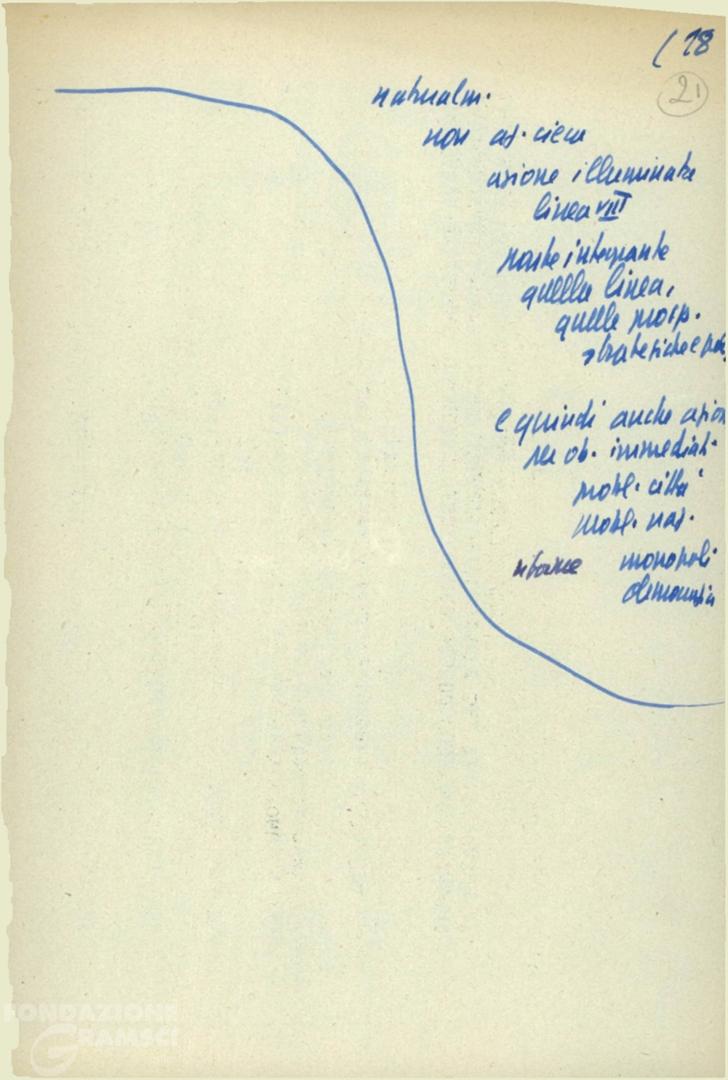 ( 18
21
naturalm.
non az. cieca
azione illuminata
linea VIII
parte integrante
quella linea,
quelle prosp.
strategiche e
e quindi anche azion
per ob. immediati.
probl. città
probl. naz.
riforme monopoli
democrazia
FONDAZIONE
GRAMSCI